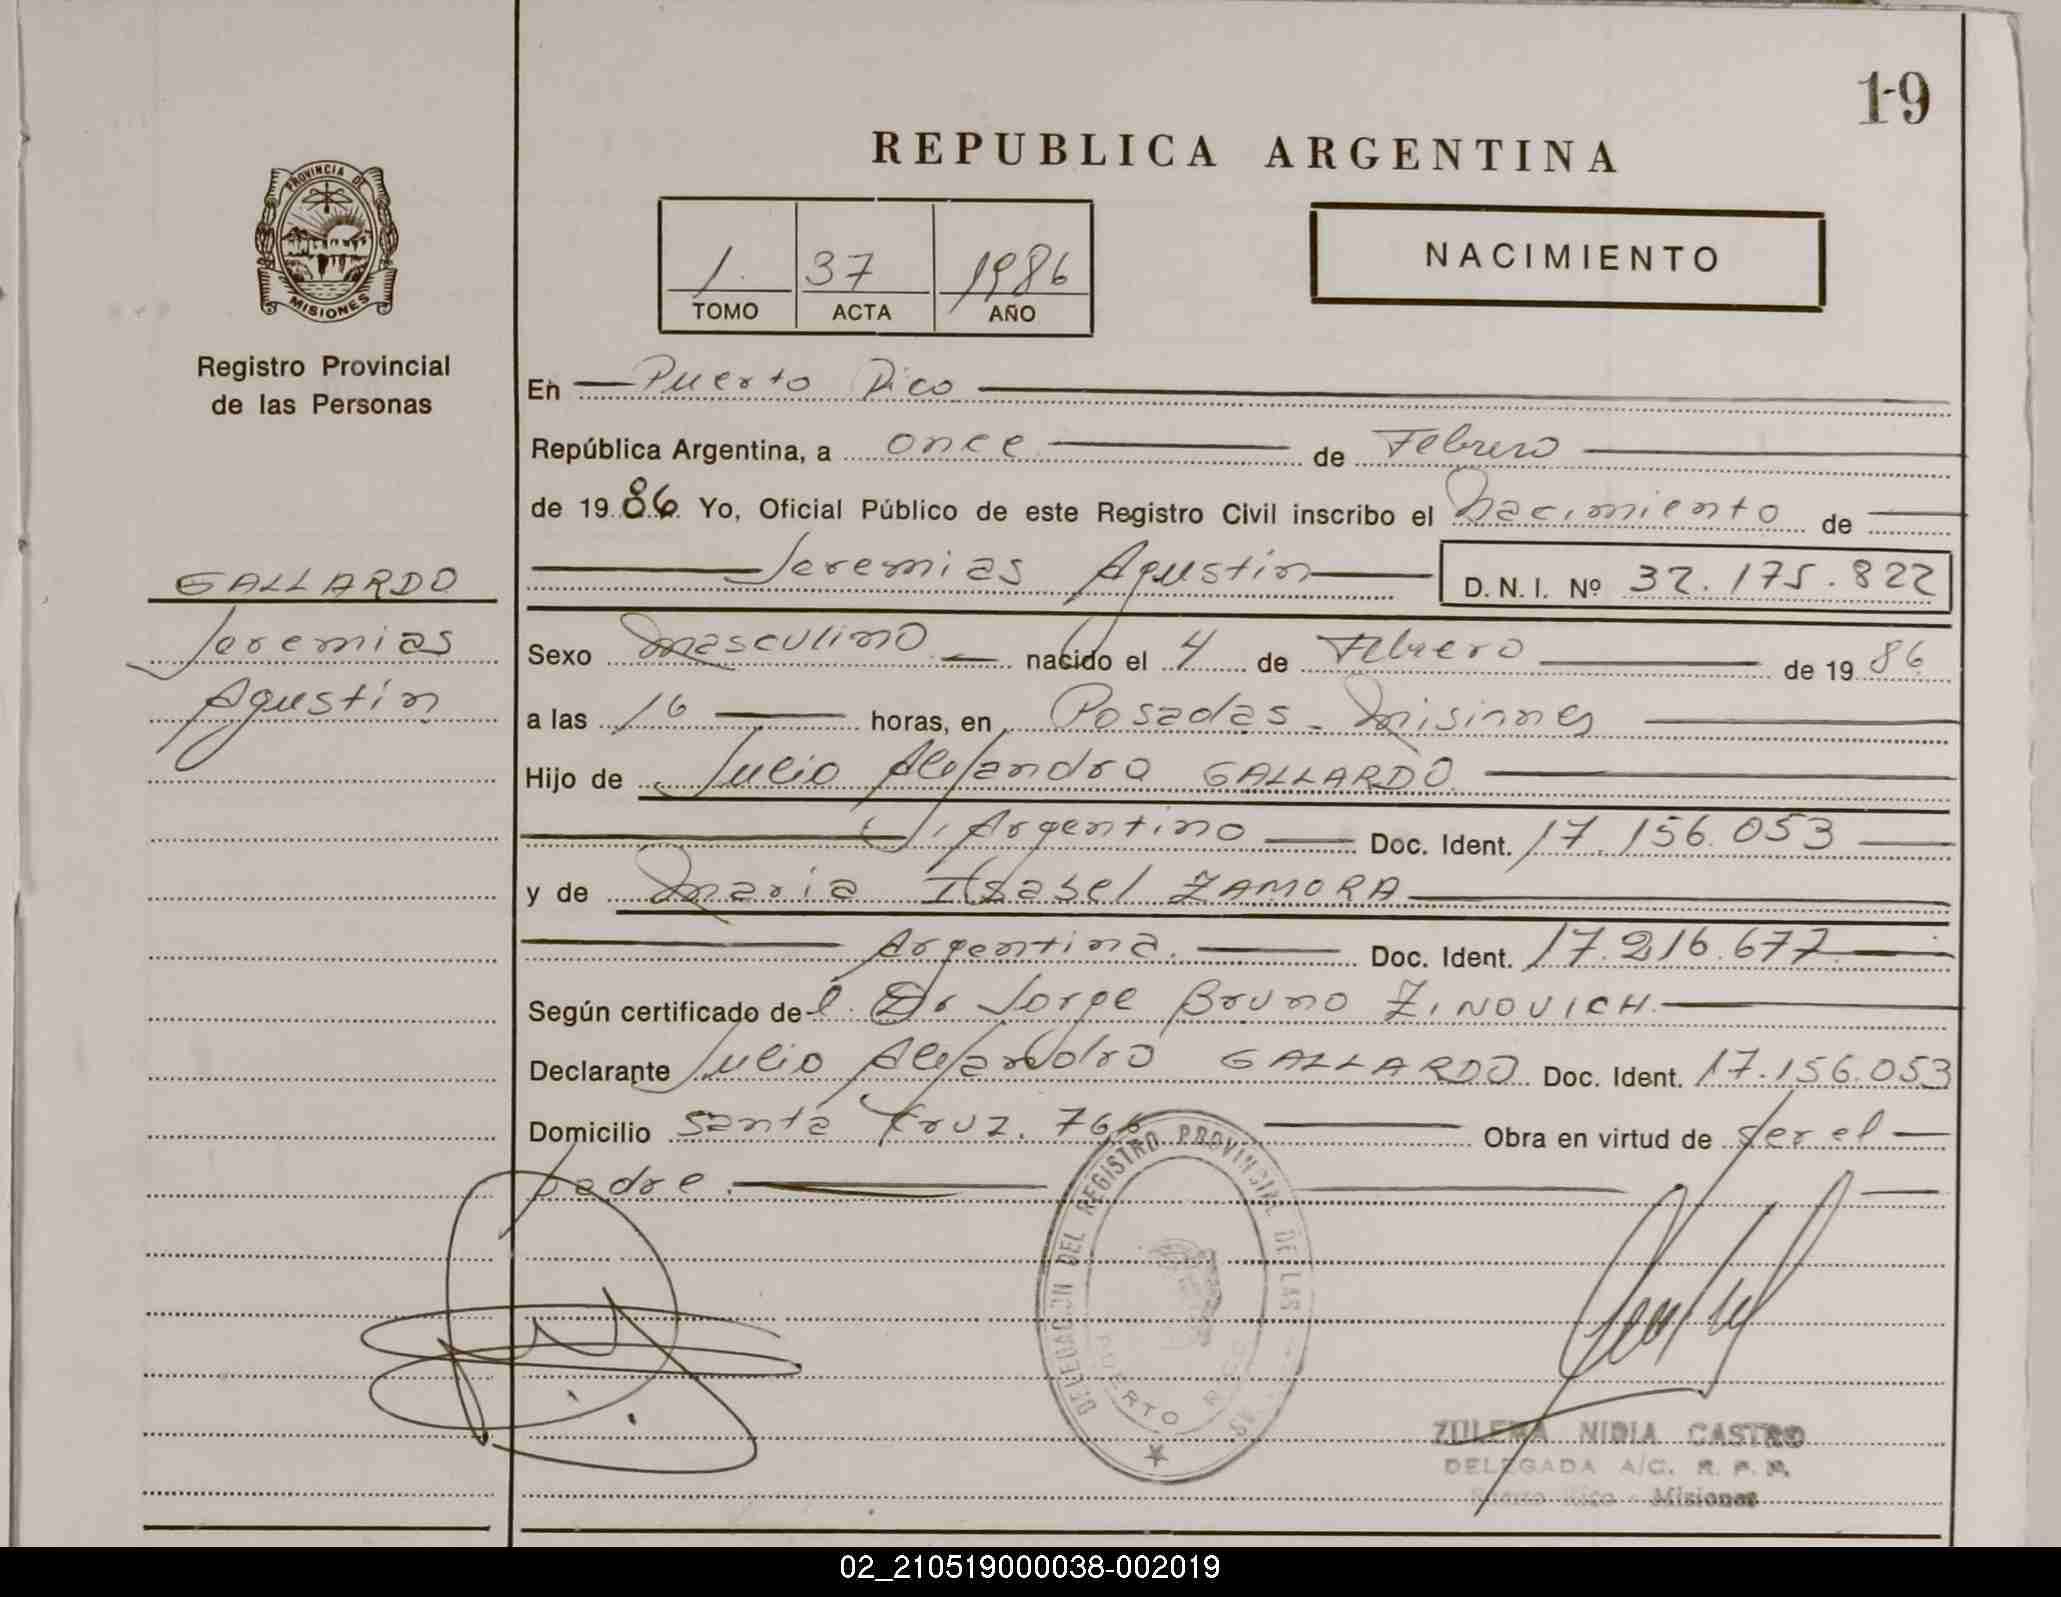 19
REPUBLICA ARGENTINA
PROVINCIA DE
MISIONES
Registro Provincial
de las Personas
1. 37 1986
TOMO ACTA AÑO
NACIMIENTO
En Puerto Rico
República Argentina, a once de Febrero
de 1986 Yo, Oficial Público de este Registro Civil inscribo el Nacimiento de
Jeremias Agustin D. N. I. Nº 32.175.822
GALLARDO
Jeremias
Agustín
Sexo Masculino nacido el 4 de Febrero de 1986
a las 16 horas, en Posadas - Misiones
Hijo de Julio Alejandro GALLARDO
Argentino Doc. Ident. 17.156.053
y de Maria Isabel ZAMORA
Argentina. Doc. Ident. 17.216.677
Según certificado del Dr Jorge Bruno ZINOVICH
Declarante Julio Alejandro GALLARDO Doc. Ident. 17.156.053
Domicilio Santa Cruz. 766 Obra en virtud de ser el
padre.
DELEGACION DEL REGISTRO PROVINCIAL DE LAS
PUERTO RICO
ZULEMA NIDIA CASTRO
DELEGADA A/C. R. P. P.
Puerto Rico - Misiones
02_210519000038-002019